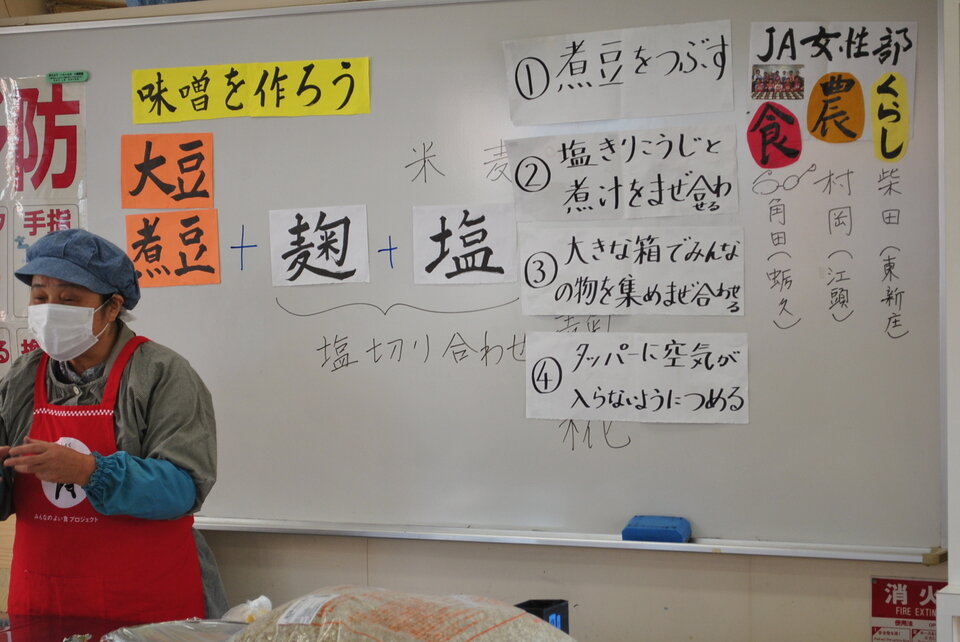 味噌を作ろう
大豆
煮豆
+
麹
+
塩
米 麦
塩切り合わせ
糀
①煮豆をつぶす
②塩きりこうじと
煮汁をまぜ合わ
せる
③大きな箱でみんな
の物を集めまぜ合わせる
④タッパーに空気が
入らないようにつめる
JA女性部
食
農
くらし
角田(蛎久)
村岡(江頭)
柴田(東新庄)
防
手指
みんなのよい食プロジェクト
消火
FIRE EXTIN
使用法